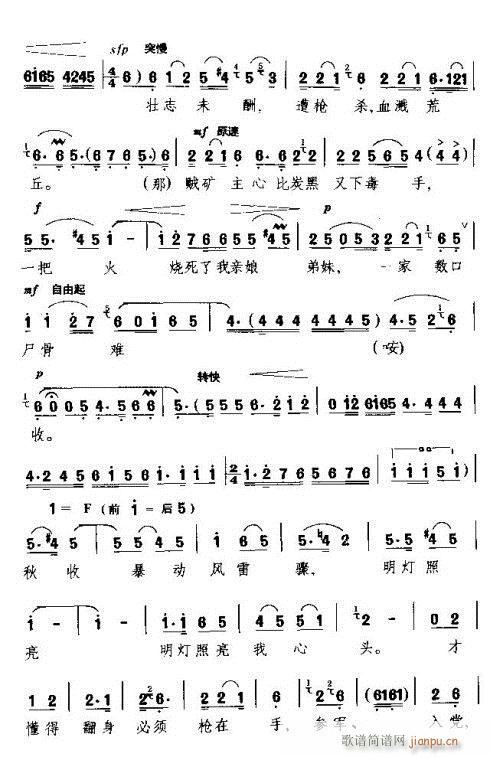 sfp 突慢
6165 4245 (4/4) 6) 6 1 2 5 #4 5 3 | 2 2 1 6 2 2 1 6·121
壮志未酬，遭枪杀，血溅荒
mf 原速
6· 6 5·(6 7 6 5·) 6 | 2 2 1 6 6·6 2 | 2 2 5 6 5 4 (4 4
丘。（那）贼矿主心比炭黑又下毒手，
f p
5 5· #4 5 1 - | 1 2 7 6 6 5 5 #4 5 | 2 5 0 5 3 2 2 1 6 5
一把火烧死了我亲娘弟妹，一家数口
mf 自由起
1 1 2 7 6 0 1 6 5 | 4· (4 4 4 4 4 4 | 4· 5 2 1 6
尸骨难（安）
p 转快
6 0 0 5 4· 5 6 6 | 5· (5 5 5 6·2 1 2 | 0 12 6165 4 4 4
收。
4·2 4 5 6 1 5 6 1·1 1 1 | 2/4 1·2 7 6 5 6 7 6 | 1 1 1 5 1)
1=F(前1=后5)
5· #4 | 5 - | 5 5 4 5 | 6 5 6 1 | 5· 4 2 | 5·5 #4 5
秋收暴动风雷骤，明灯照
1 - | 1 - | 1·1 6 5 | 4 5 5 1 | 2 - | 0 2
亮明灯照亮我心头。才
1 2 | 2·1 | 2 6 5 | 6 5 1 | 2 6 | (6161) | 2 6
懂得翻身必须枪在手，参军、入党，
歌谱简谱网
jianpu.cn